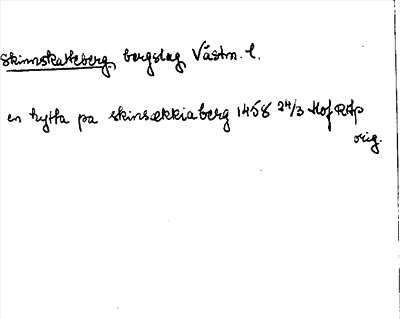 Skinnskatteberg, bergslag Västm. l.
en hytta pa skinsækkiaberg 1458 24/3 Hof RAp
orig.